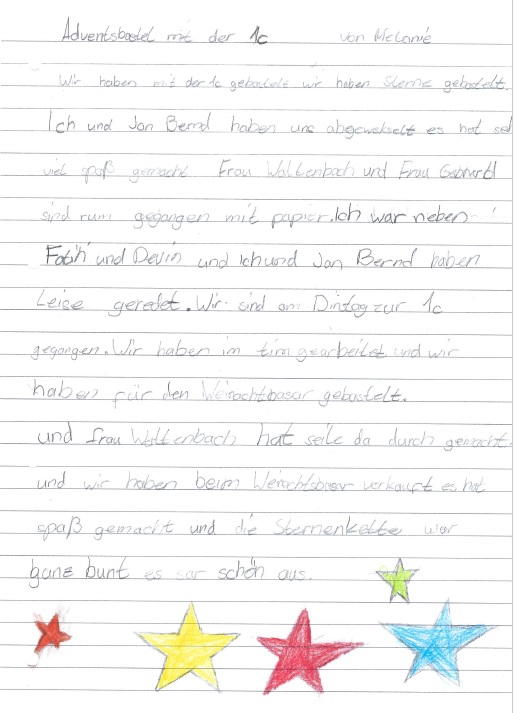 Adventsbastel mit der 1c von Melanie
Wir haben mit der 1c gebastelt wir haben Sterne gebastelt.
Ich und Jan Bernd haben uns abgewekselt es hat sel
viel spaß gemacht Frau Woltenbach und Frau Gebhardt
sind rum gegangen mit papier. Ich war neben
Fatih und Devin und Ich und Jan Bernd haben
Leise geredet. Wir sind am Dintag zur 1c
gegangen. Wir haben im tim gearbeitet und wir
haben für den Weinachtbasar gebastelt.
und frau Woltenbach hat seile da durch gemacht.
und wir haben beim Weinachtsbasar verkauft es hat
spaß gemacht und die Sternenkette war
ganz bunt es sar schön aus.